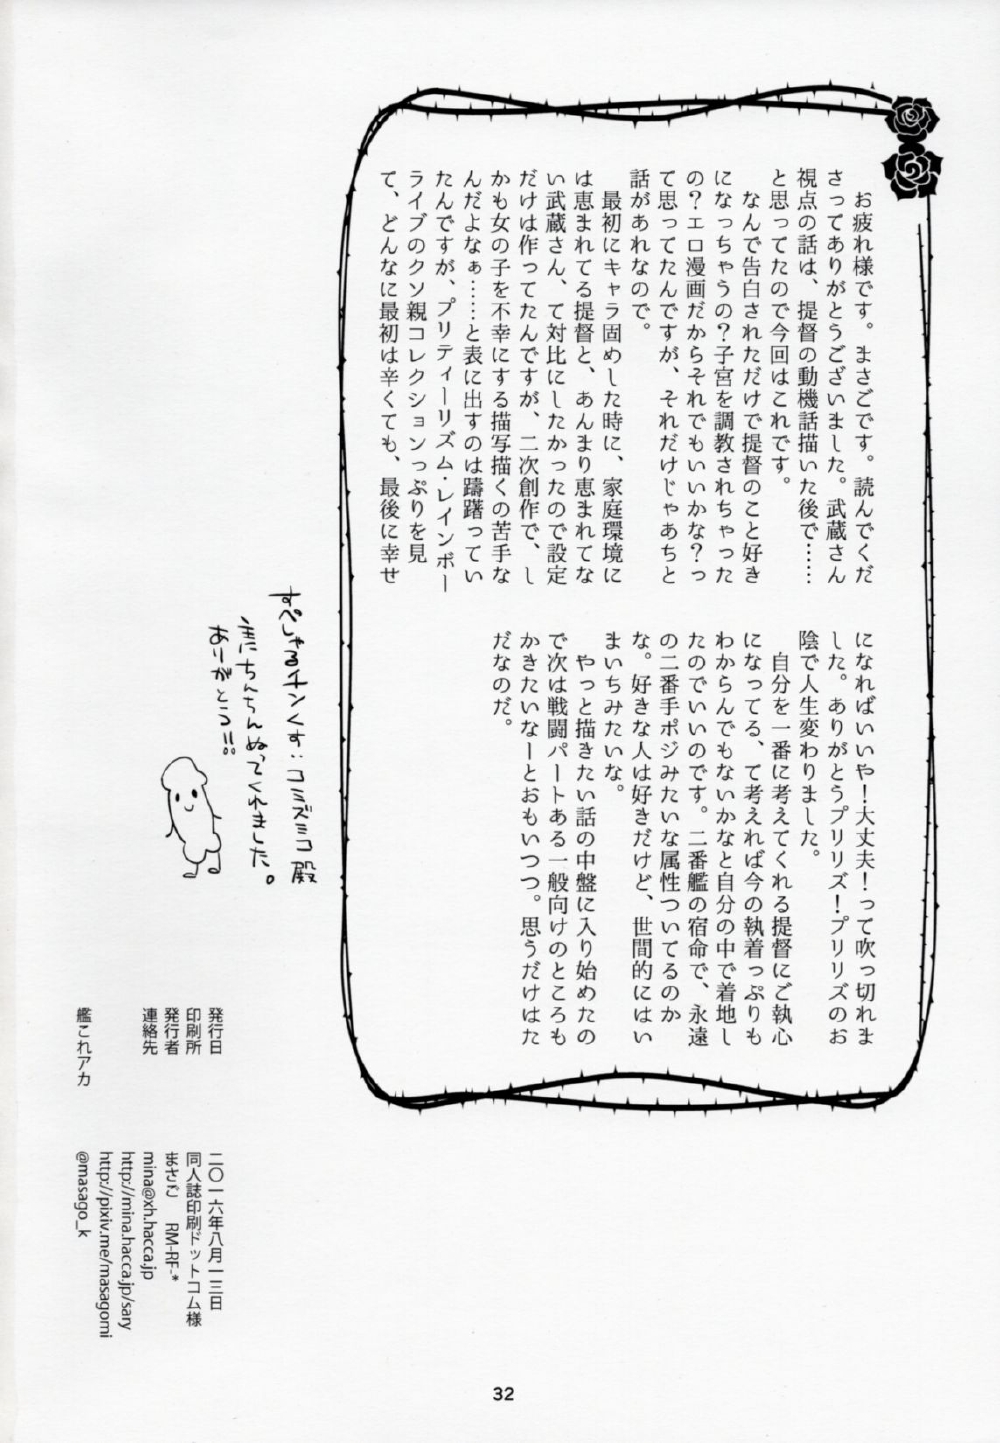 お疲れ様です。まさごです。読んでくだ
さってありがとうございました。武蔵さん
視点の話は、提督の動機話描いた後で……
と思ってたので今回はこれです。
なんで告白されただけで提督のこと好き
になっちゃうの？子宮を調教されちゃった
の？エロ漫画だからそれでもいいかな？っ
て思ってたんですが、それだけじゃあちと
話があれなので。
最初にキャラ固めした時に、家庭環境に
は恵まれてる提督と、あんまり恵まれてな
い武蔵さん、て対比にしたかったので設定
だけは作ってたんですが、二次創作で、し
かも女の子を不幸にする描写描くの苦手な
んだよなぁ……と表に出すのは躊躇ってい
たんですが、プリティーリズム・レインボー
ライブのクソ親コレクションっぷりを見
て、どんなに最初は辛くても、最後に幸せ
になればいいや！大丈夫！って吹っ切れま
した。ありがとうプリリズ！プリリズのお
陰で人生変わりました。
自分を一番に考えてくれる提督にご執心
になってる、て考えれば今の執着っぷりも
わからんでもないかなと自分の中で着地し
たのでいいのです。二番艦の宿命で、永遠
の二番手ポジみたいな属性ついてるのか
な。好きな人は好きだけど、世間的にはい
まいちみたいな。
やっと描きたい話の中盤に入り始めたの
で次は戦闘パートある一般向けのところも
かきたいなーとおもいつつ。思うだけはた
だなのだ。
すぺしゃるチンくす：コミズミコ殿
主にちんちんぬってくれました。
ありがとう!!
発行日 二〇一六年八月一三日
印刷所 同人誌印刷ドットコム様
発行者 まさご RM-RF-*
連絡先 mina@xh.hacca.jp
http://mina.hacca.jp/sary
http://pixiv.me/masagomi
艦これアカ @masago_k
32